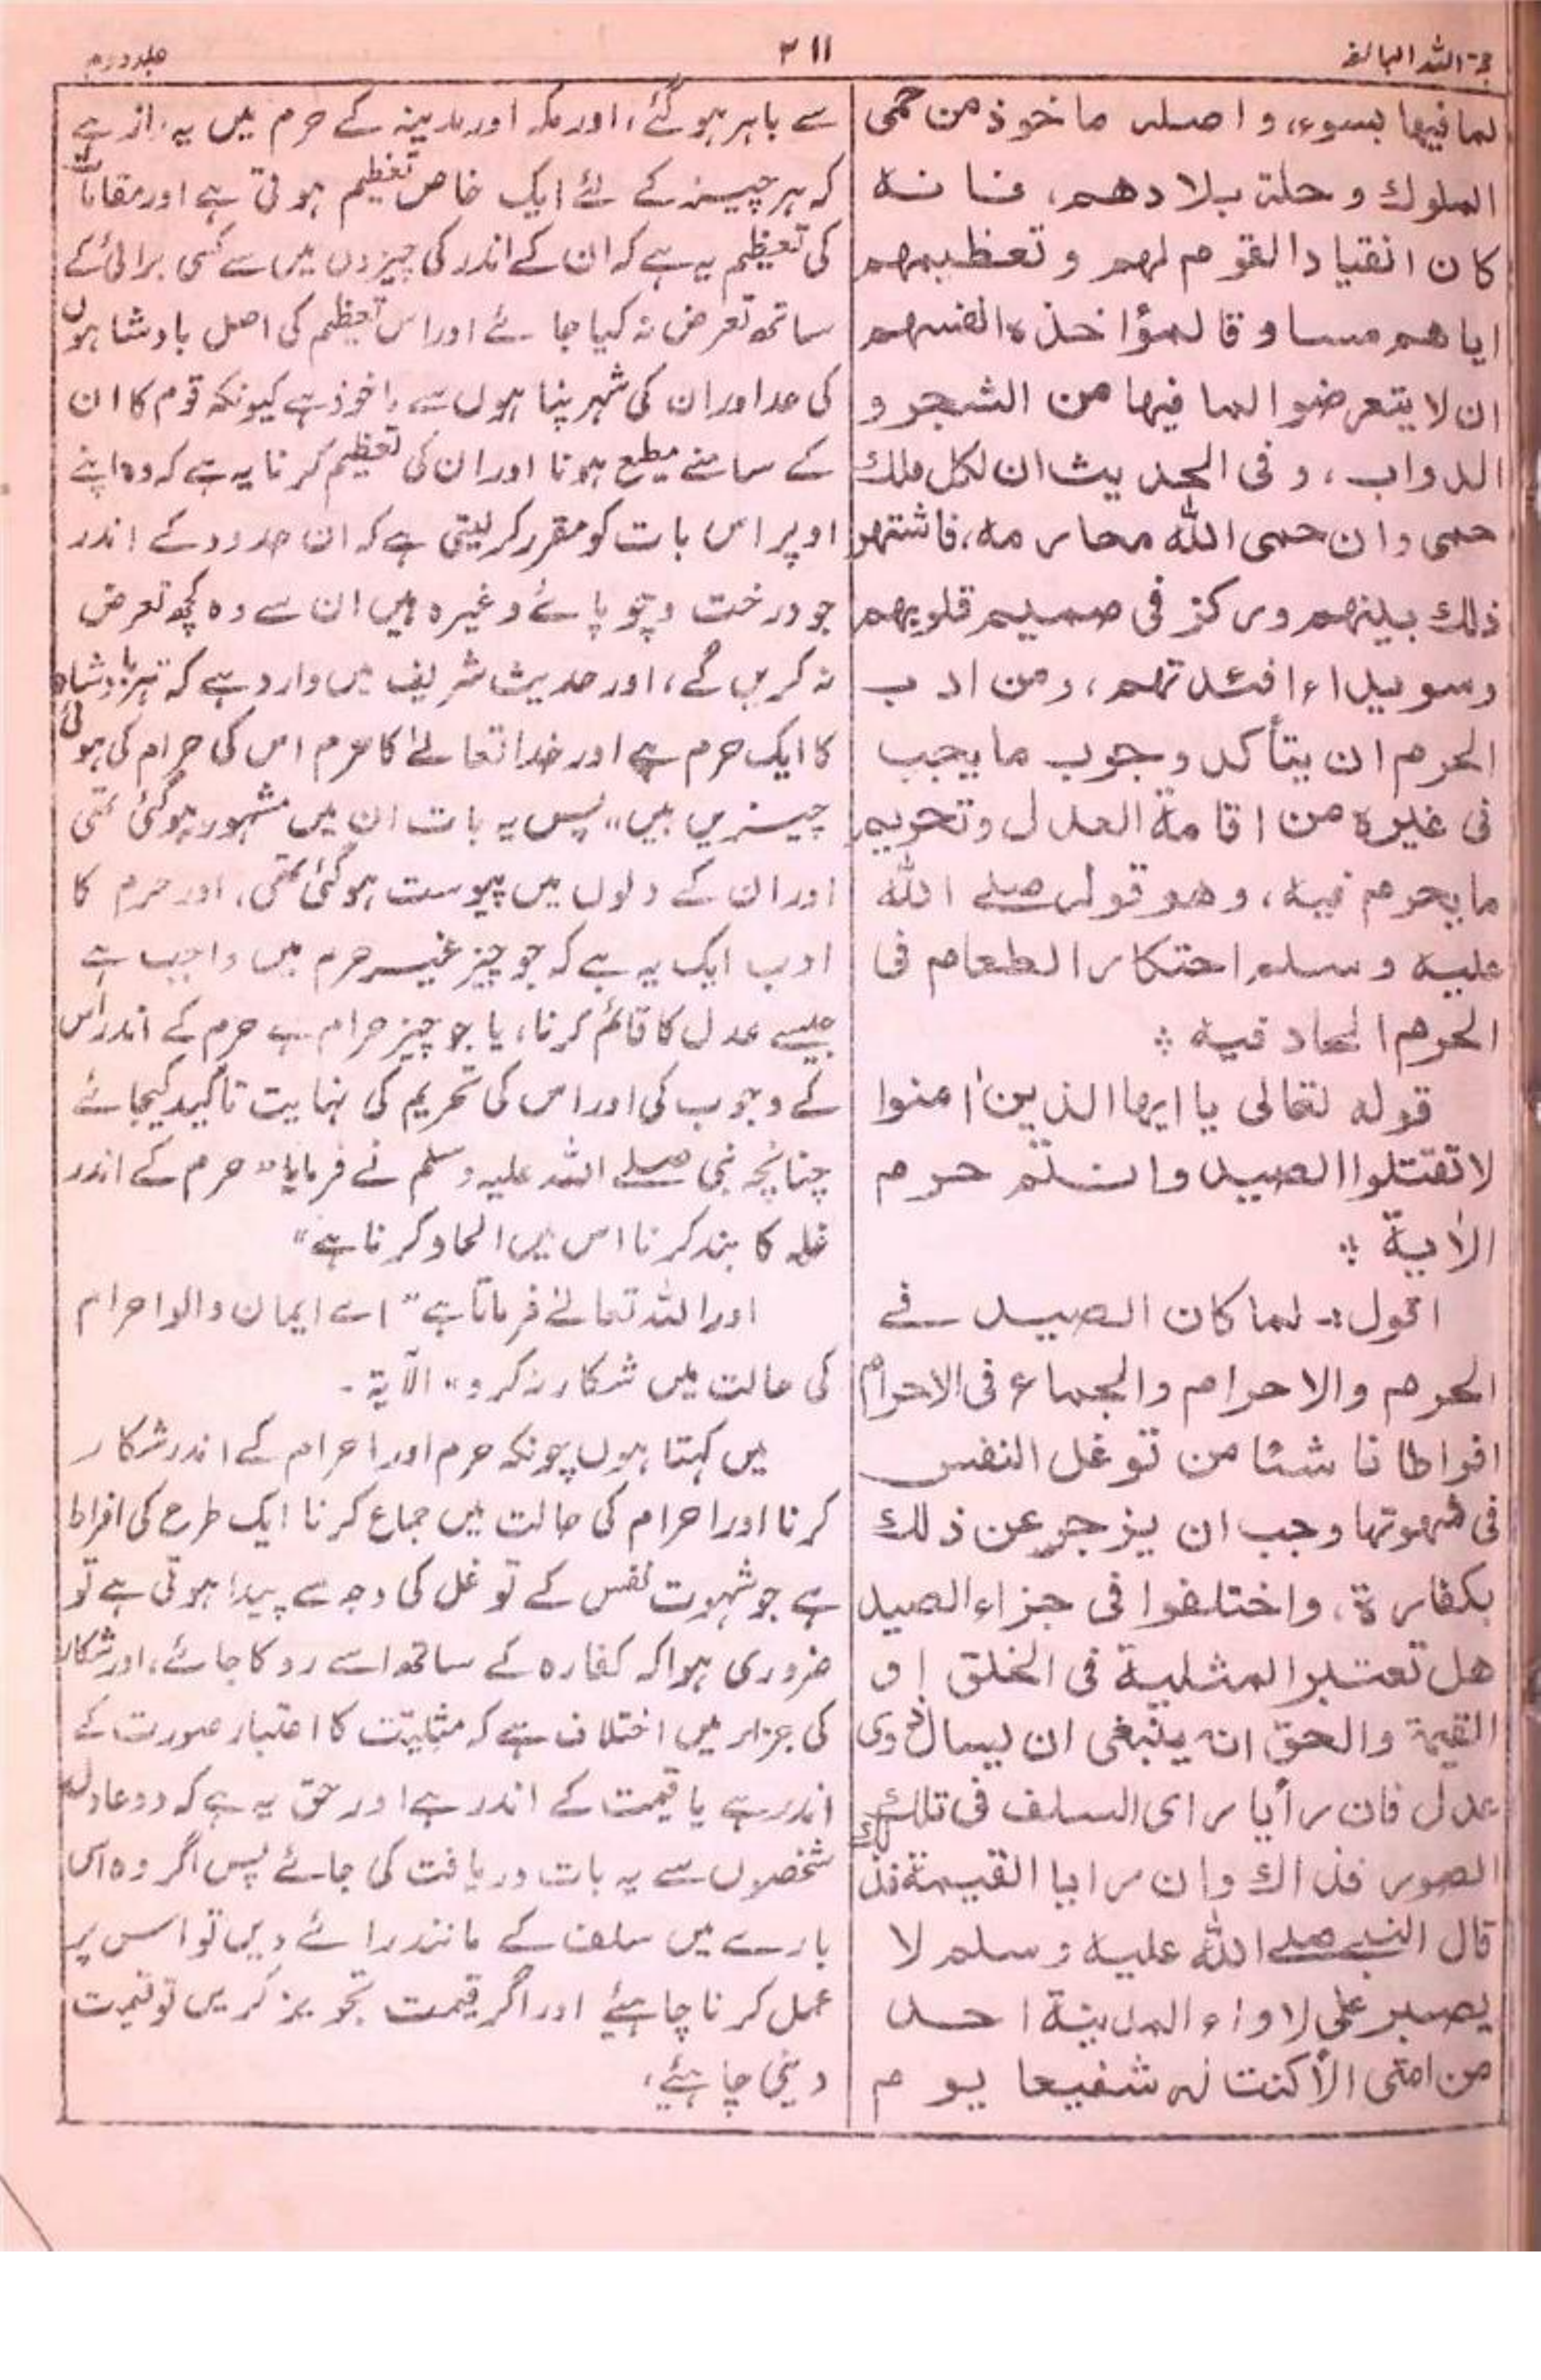 حجۃ اللہ البالغہ
۳۱۱
جلد دوم
لما فيها بسوء، واصله ماخوذ من حمى
الملوك وحلة بلادهم، فانه
كان انقياد القوم لهم وتعظيمهم
اياهم مساوقا لمؤاخذة انفسهم
ان لا يتعرضوا لما فيها من الشجر و
الدواب، وفى الحديث ان لكل ملك
حمى وان حمى الله محارمه، فاشتهر
ذلك بينهم وركز فى صميم قلوبهم
وسويداء افئدتهم، ومن ادب
الحرم ان يتأكد وجوب ما يجب
فى غيره من اقامة العدل وتحريم
ما يحرم فيه، وهو قوله صلے الله
عليه وسلم احتكار الطعام فى
الحرم الحاد فيه ؞
قوله تعالى يا ايها الذين اٰمنوا
لا تقتلوا الصيد وانتم حرم
الاٰية ؞
اقول :- لما كان الصيد فے
الحرم والاحرام والجماع فى الاحرام
افراطا ناشئا من توغل النفس
فى شهوتها وجب ان يزجر عن ذلك
بكفارة، واختلفوا فى جزاء الصيد
هل تعتبر المثلية فى الخلق او
القيمة والحق انه ينبغى ان يسال ذوى
عدل فان رأيا راى السلف فى تلك
الصور فذاك وان رايا القيمة فذلك
قال النبے صلے الله عليه وسلم لا
يصبر على لاواء المدينة احد
من امتى الا كنت له شفيعا يوم
سے باہر ہوگئے، اور مکہ اور مدینہ کے حرم میں یہ راز ہے
کہ ہر چیز کے لئے ایک خاص تعظیم ہوتی ہے اور مقامات
کی تعظیم یہ ہے کہ ان کے اندر کی چیزوں میں سے کسی برائی کے
ساتھ تعرض نہ کیا جائے اور اس تعظیم کی اصل بادشاہوں
کی حد اور ان کی شہر پناہوں سے ماخوذ ہے کیونکہ قوم کا ان
کے سامنے مطیع ہونا اور ان کی تعظیم کرنا یہ ہے کہ وہ اپنے
اوپر اس بات کو مقرر کر لیتی ہے کہ ان حدود کے اندر
جو درخت و چوپائے وغیرہ ہیں ان سے وہ کچھ تعرض
نہ کریں گے، اور حدیث شریف میں وارد ہے کہ "ہر بادشاہ
کا ایک حرم ہے اور خدا تعالےٰ کا حرم اس کی حرام کی ہوئی
چیزیں ہیں" پس یہ بات ان میں مشہور ہوگئی تھی
اور ان کے دلوں میں پیوست ہوگئی تھی، اور حرم کا
ادب ایک یہ ہے کہ جو چیز غیر حرم میں واجب ہے
جیسے عدل کا قائم کرنا، یا جو چیز حرام ہے حرم کے اندر اس
کے وجوب کی اور اس کی تحریم کی نہایت تاکید کیجائے
چنانچہ نبی صلے اللہ علیہ وسلم نے فرمایا "حرم کے اندر
غلہ کا بند کرنا اس میں الحاد کرنا ہے"
اور اللہ تعالےٰ فرماتا ہے "اے ایمان والو احرام
کی حالت میں شکار نہ کرو" الآیۃ -
میں کہتا ہوں چونکہ حرم اور احرام کے اندر شکار
کرنا اور احرام کی حالت میں جماع کرنا ایک طرح کی افراط
ہے جو شہوت نفس کے توغل کی وجہ سے پیدا ہوتی ہے تو
ضروری ہوا کہ کفارہ کے ساتھ اسے روکا جائے، اور شکار
کی جزاء میں اختلاف ہے کہ مثلیت کا اعتبار صورت کے
اندر ہے یا قیمت کے اندر ہے اور حق یہ ہے کہ دو عادل
شخصوں سے یہ بات دریافت کی جائے پس اگر وہ اس
بارے میں سلف کے مانند رائے دیں تو اس پر
عمل کرنا چاہیئے اور اگر قیمت تجویز کریں تو قیمت
دینی چاہیئے،